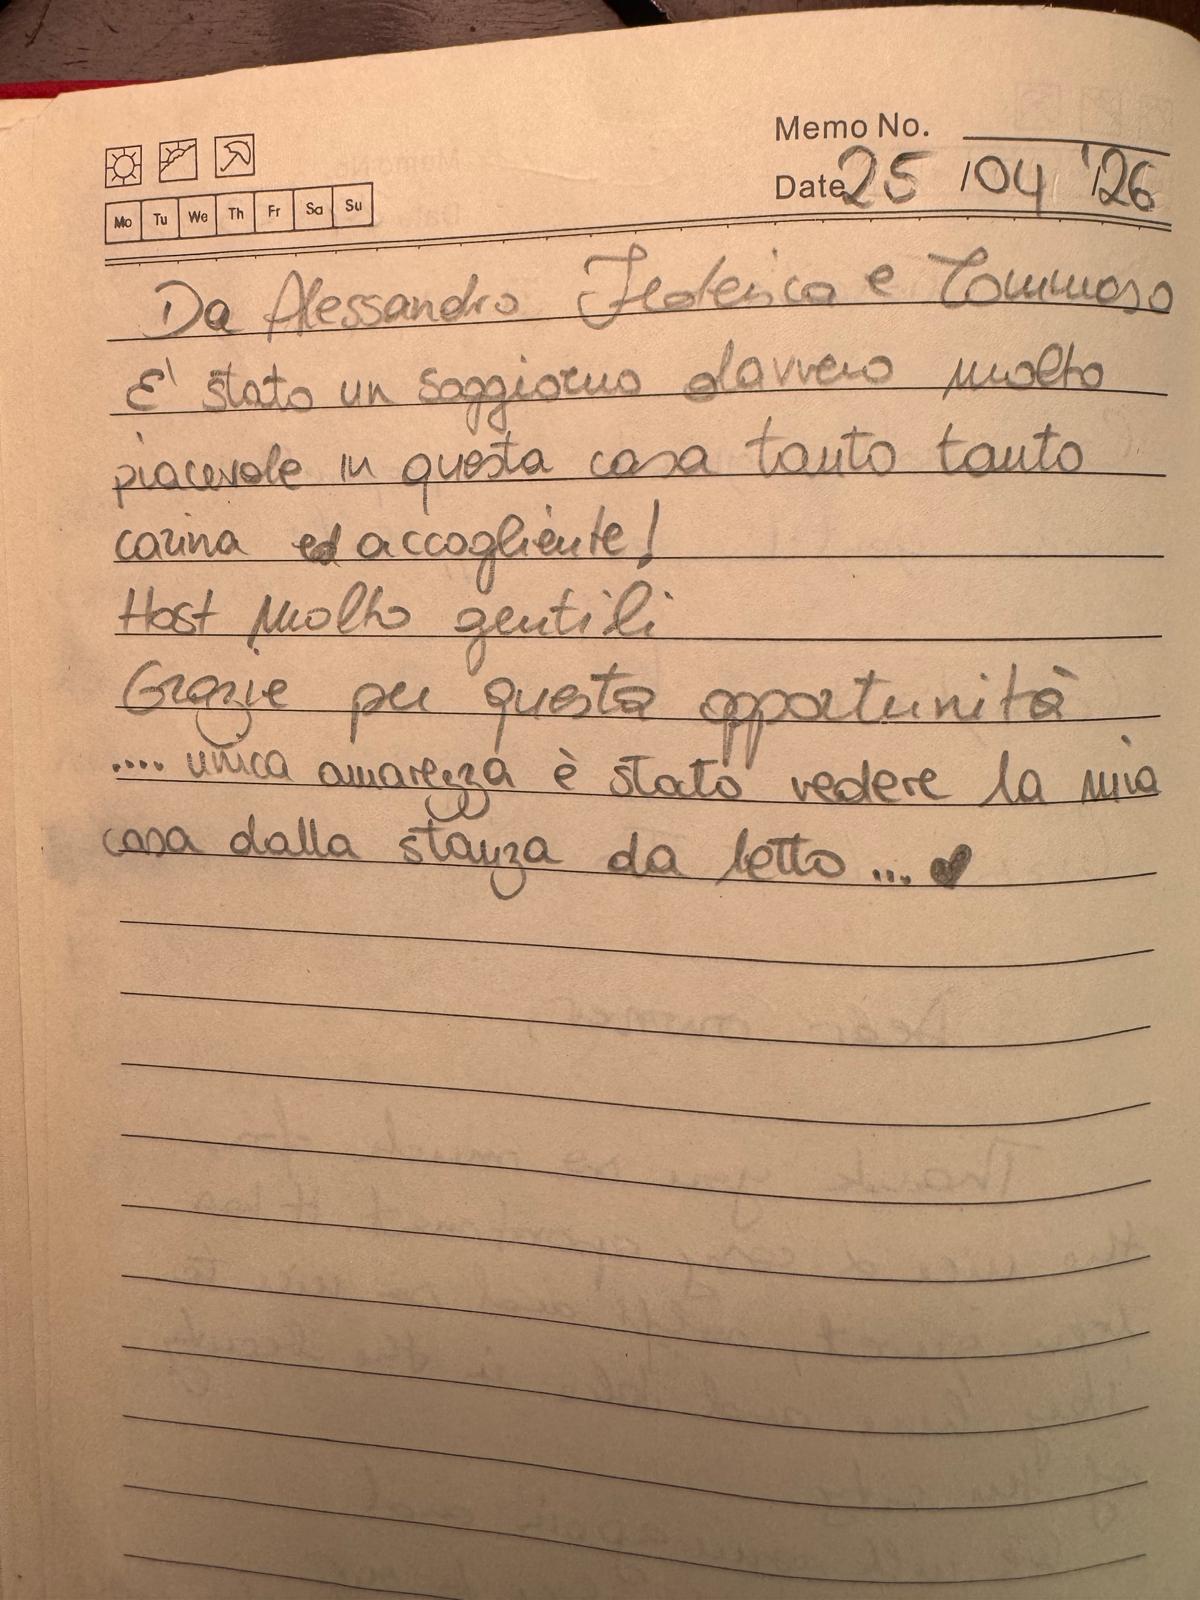 Memo No.
Date 25 / 04 '26
Mo Tu We Th Fr Sa Su
Da Alessandro Federica e Tommaso
E' stato un soggiorno davvero molto
piacevole in questa casa tanto tanto
carina ed accogliente!
Host molto gentili
Grazie per questa opportunità
.... unica amarezza è stato vedere la mia
casa dalla stanza da letto ... ♥